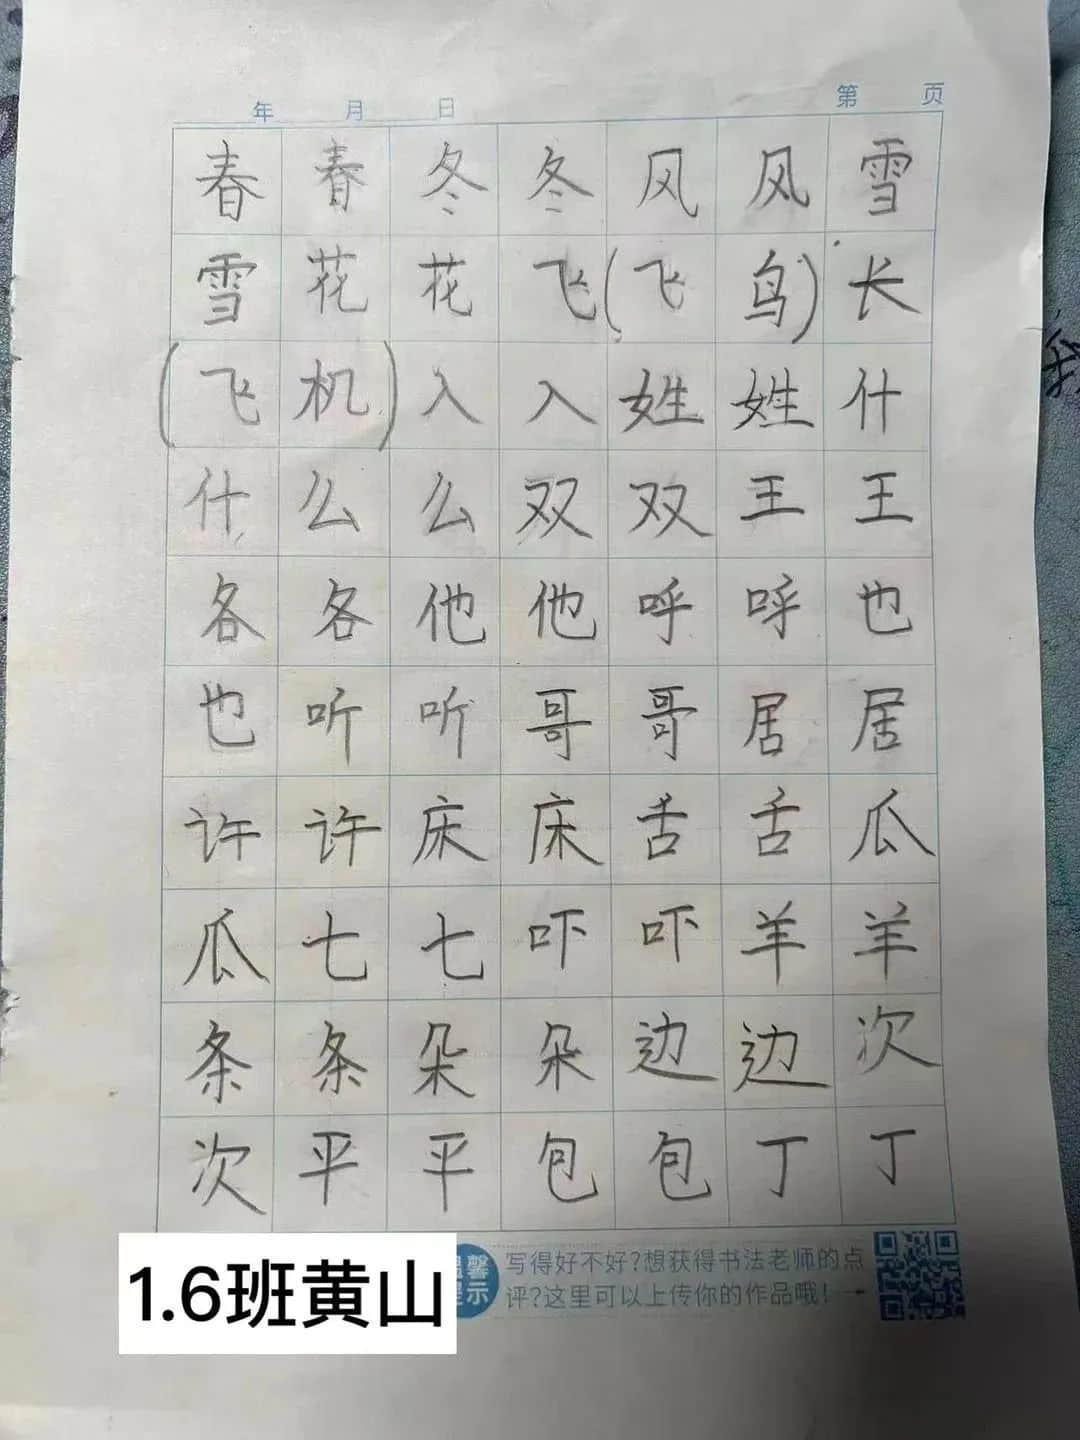 年 月 日 第 页
春春冬冬风风雪
雪花花飞(飞鸟)长
(飞机)入入姓姓什
什么么双双王王
各各他他呼呼也
也听听哥哥居居
许许床床舌舌瓜
瓜七七吓吓羊羊
条条朵朵边边次
次平平包包丁丁
馨 写得好不好?想获得书法老师的点
示 评?这里可以上传你的作品哦!
1.6班黄山